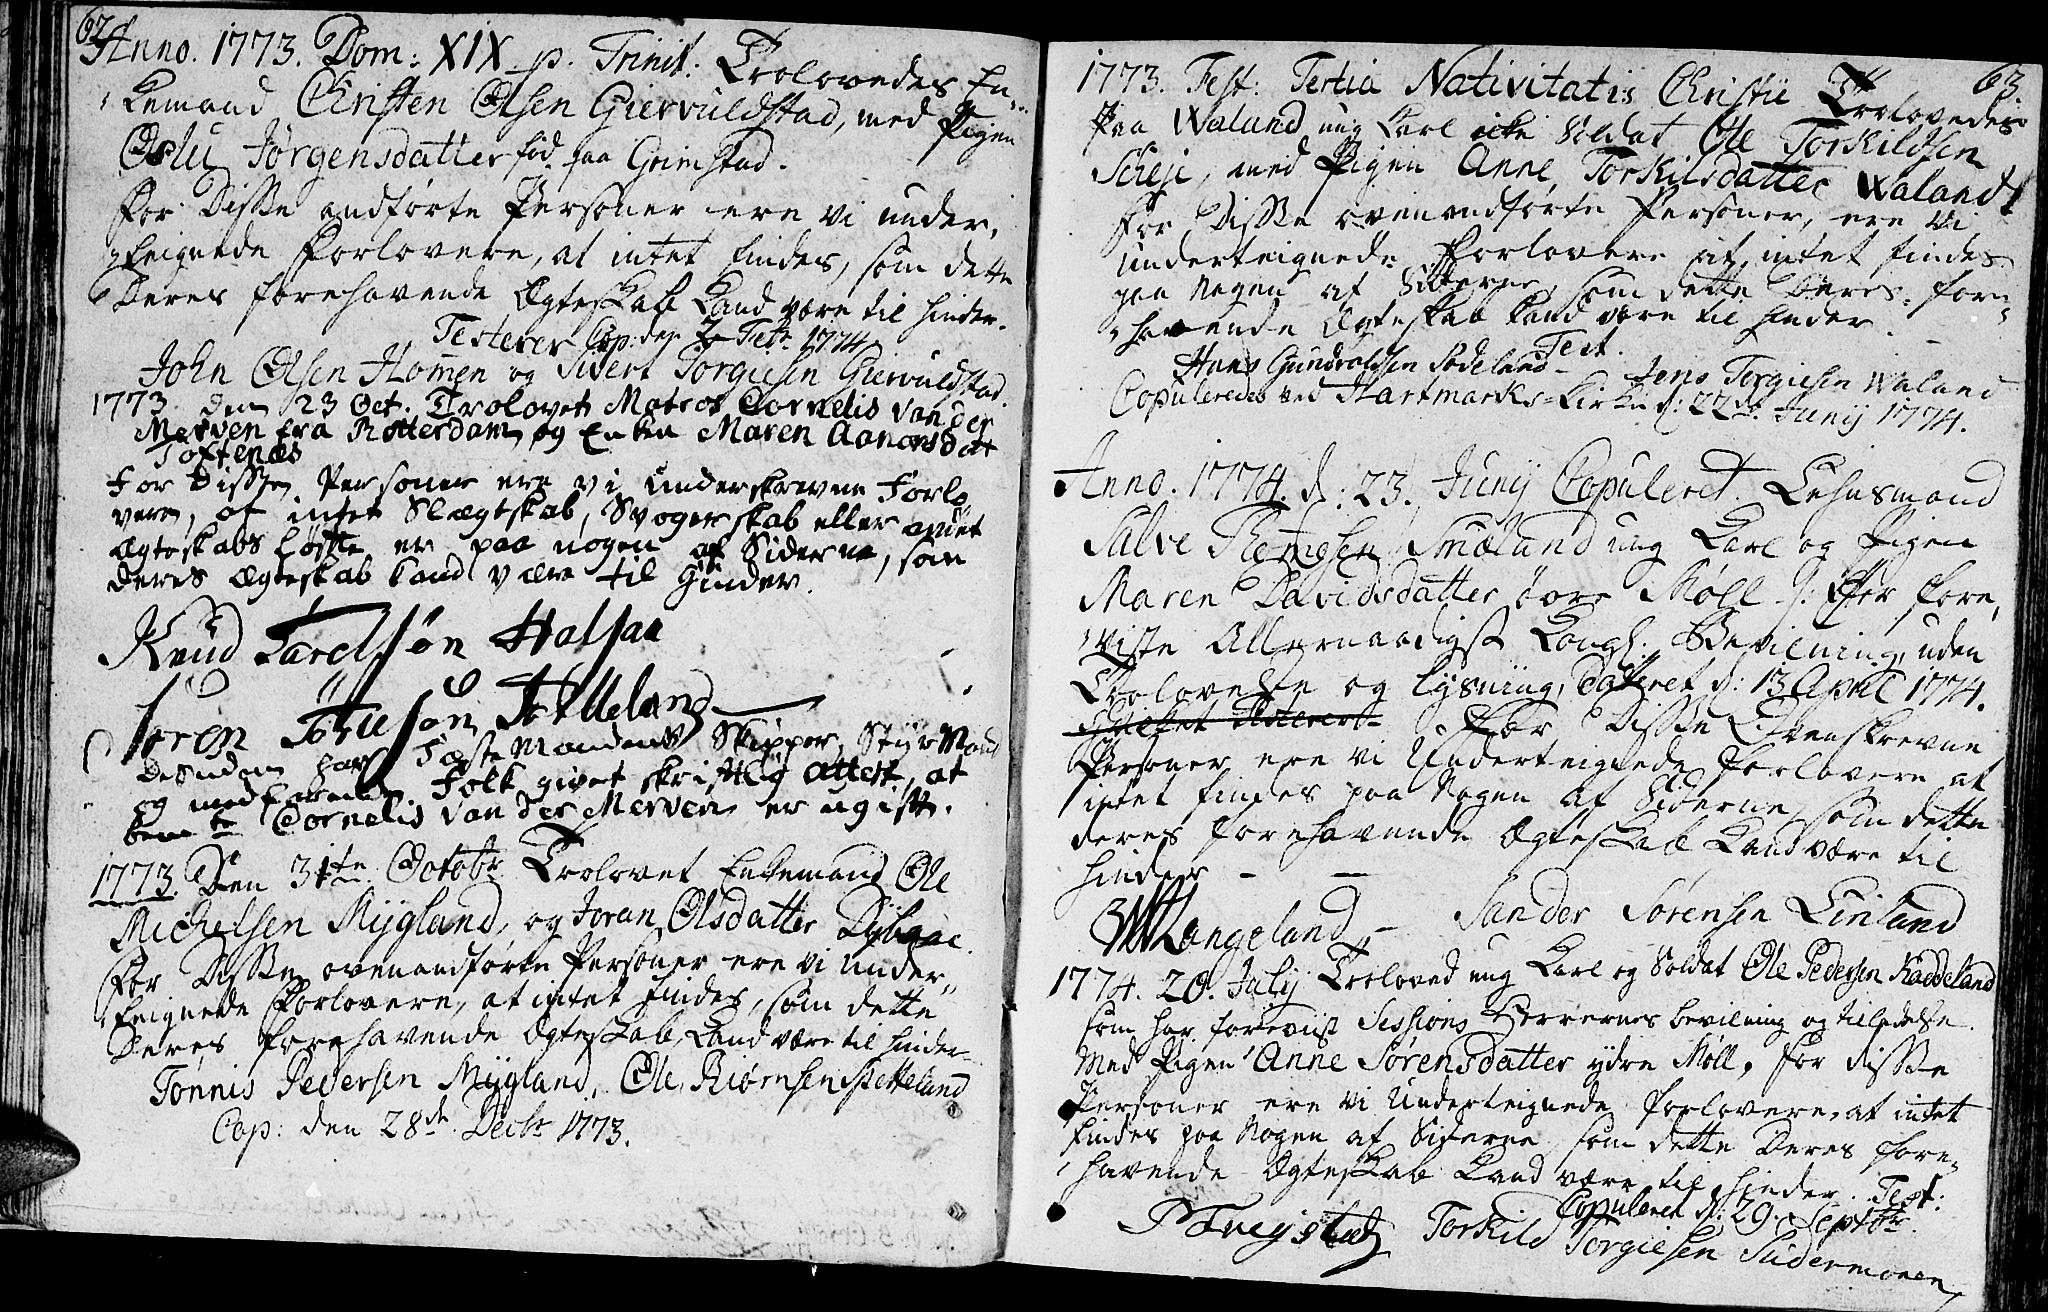 62
Anno. 1773. Dom: XIX p. Trinit. Trolovedes En-
kemand Christen Olsen Giervuldstad, med Pigen
Oslu Jørgensdatter fød paa Grimstad.
For Disse andførte Persóner ere vi under,
teignede Forlovere, at intet findes, som dette
Deres forehavende Ægteskab kand være til hinder.
Testerer Cop: d. 2 Febr 1774
John Olsen Homen og Sivert Torgiesen Giervuldstad.
1773. den 23 Oct. Trolovet Matros Cornelis van der
Merven fra Rotterdam, og Enken Maren Aanonsdatt
Toftenæs
For Disse Personer ere vi underskrevne Forlo
vere, at intet Slægtskab, Svogerskab eller andet
Ægteskabs Løfte er paa nogen af Siderne, som
deres Ægteskab kand være til Hinder.
Knud Carelsøn Halsaa
Søren Helleland
Desuden har Fæste Mandens Skipper, Styrmand
og medfarende Folk givet skriftlig Attest, at
bem.te Cornelis van der Merven er ugift.
1773. Den 31te Octobr Trolovet Enkemand Ole
Michelsen Mÿgland, og Joran Olsdatter Dÿbaae
For Disse ovenandførte Personer ere vi under,
teignede Forlovere, at intet findes, som dette
Deres forehavende Ægteskab kand være til hinder
Tønnis Pedersen Mÿgland, Ole Biørnsen Spetteland
Cop: den 28de Decbr 1773.
63.
1773. Fest: Tertia Nativitatis Christii Trolovedes
paa Waland ung Karl icke Soldat Ole Torkildsen
Scheje, med Pigen Anne Torkilsdatter Waland
For Disse ovenandførte Persóner, ere vi
underteignede Forlovere at intet findes
paa nogen af Siderne, som dette Deres fore,
havende Ægteskab kand være til hinder.
Test.
Hans Gundvaldsen Rødeland Jens Torgiesen Waland
Copuleredes ved Hartmarks Kirke d: 22de Junij 1774.
Anno. 1774. d: 23. Junij Copuleret Lehnsmand
Salve Smæland ung Karl og Pigen
Maren Davidsdatter øvre Møll Efter fore,
viste Allernaadigst Kongl: Bevilning, uden
Trolovelse og Lysning, dateret d: 13 April 1774.
For Disse Ovenskrevne
Personer ere vi Underteignede Forlovere at
intet findes paa nogen af Siderne, som dette
deres forehavende Ægteskab kand være til
hinder
Langeland Sander Sørensen Linland
1774. 20. Julij Troloved ung Karl og Soldat Ole Pedersen Kaddeland
som har foreviist Sessions Herrernes bevilning og tiladelse.
Med Pigen Anne Sørensdatter ydre Møll, for disse
Persóner ere vi Underteignede Forlovere, at intet
findes paa nogen af Siderne som dette Deres fore,
havende Ægteskab kand være til hinder. Test:
Copuleret d: 29. Septbr.
Trejstad Torkild Torgiesen Sudermonen